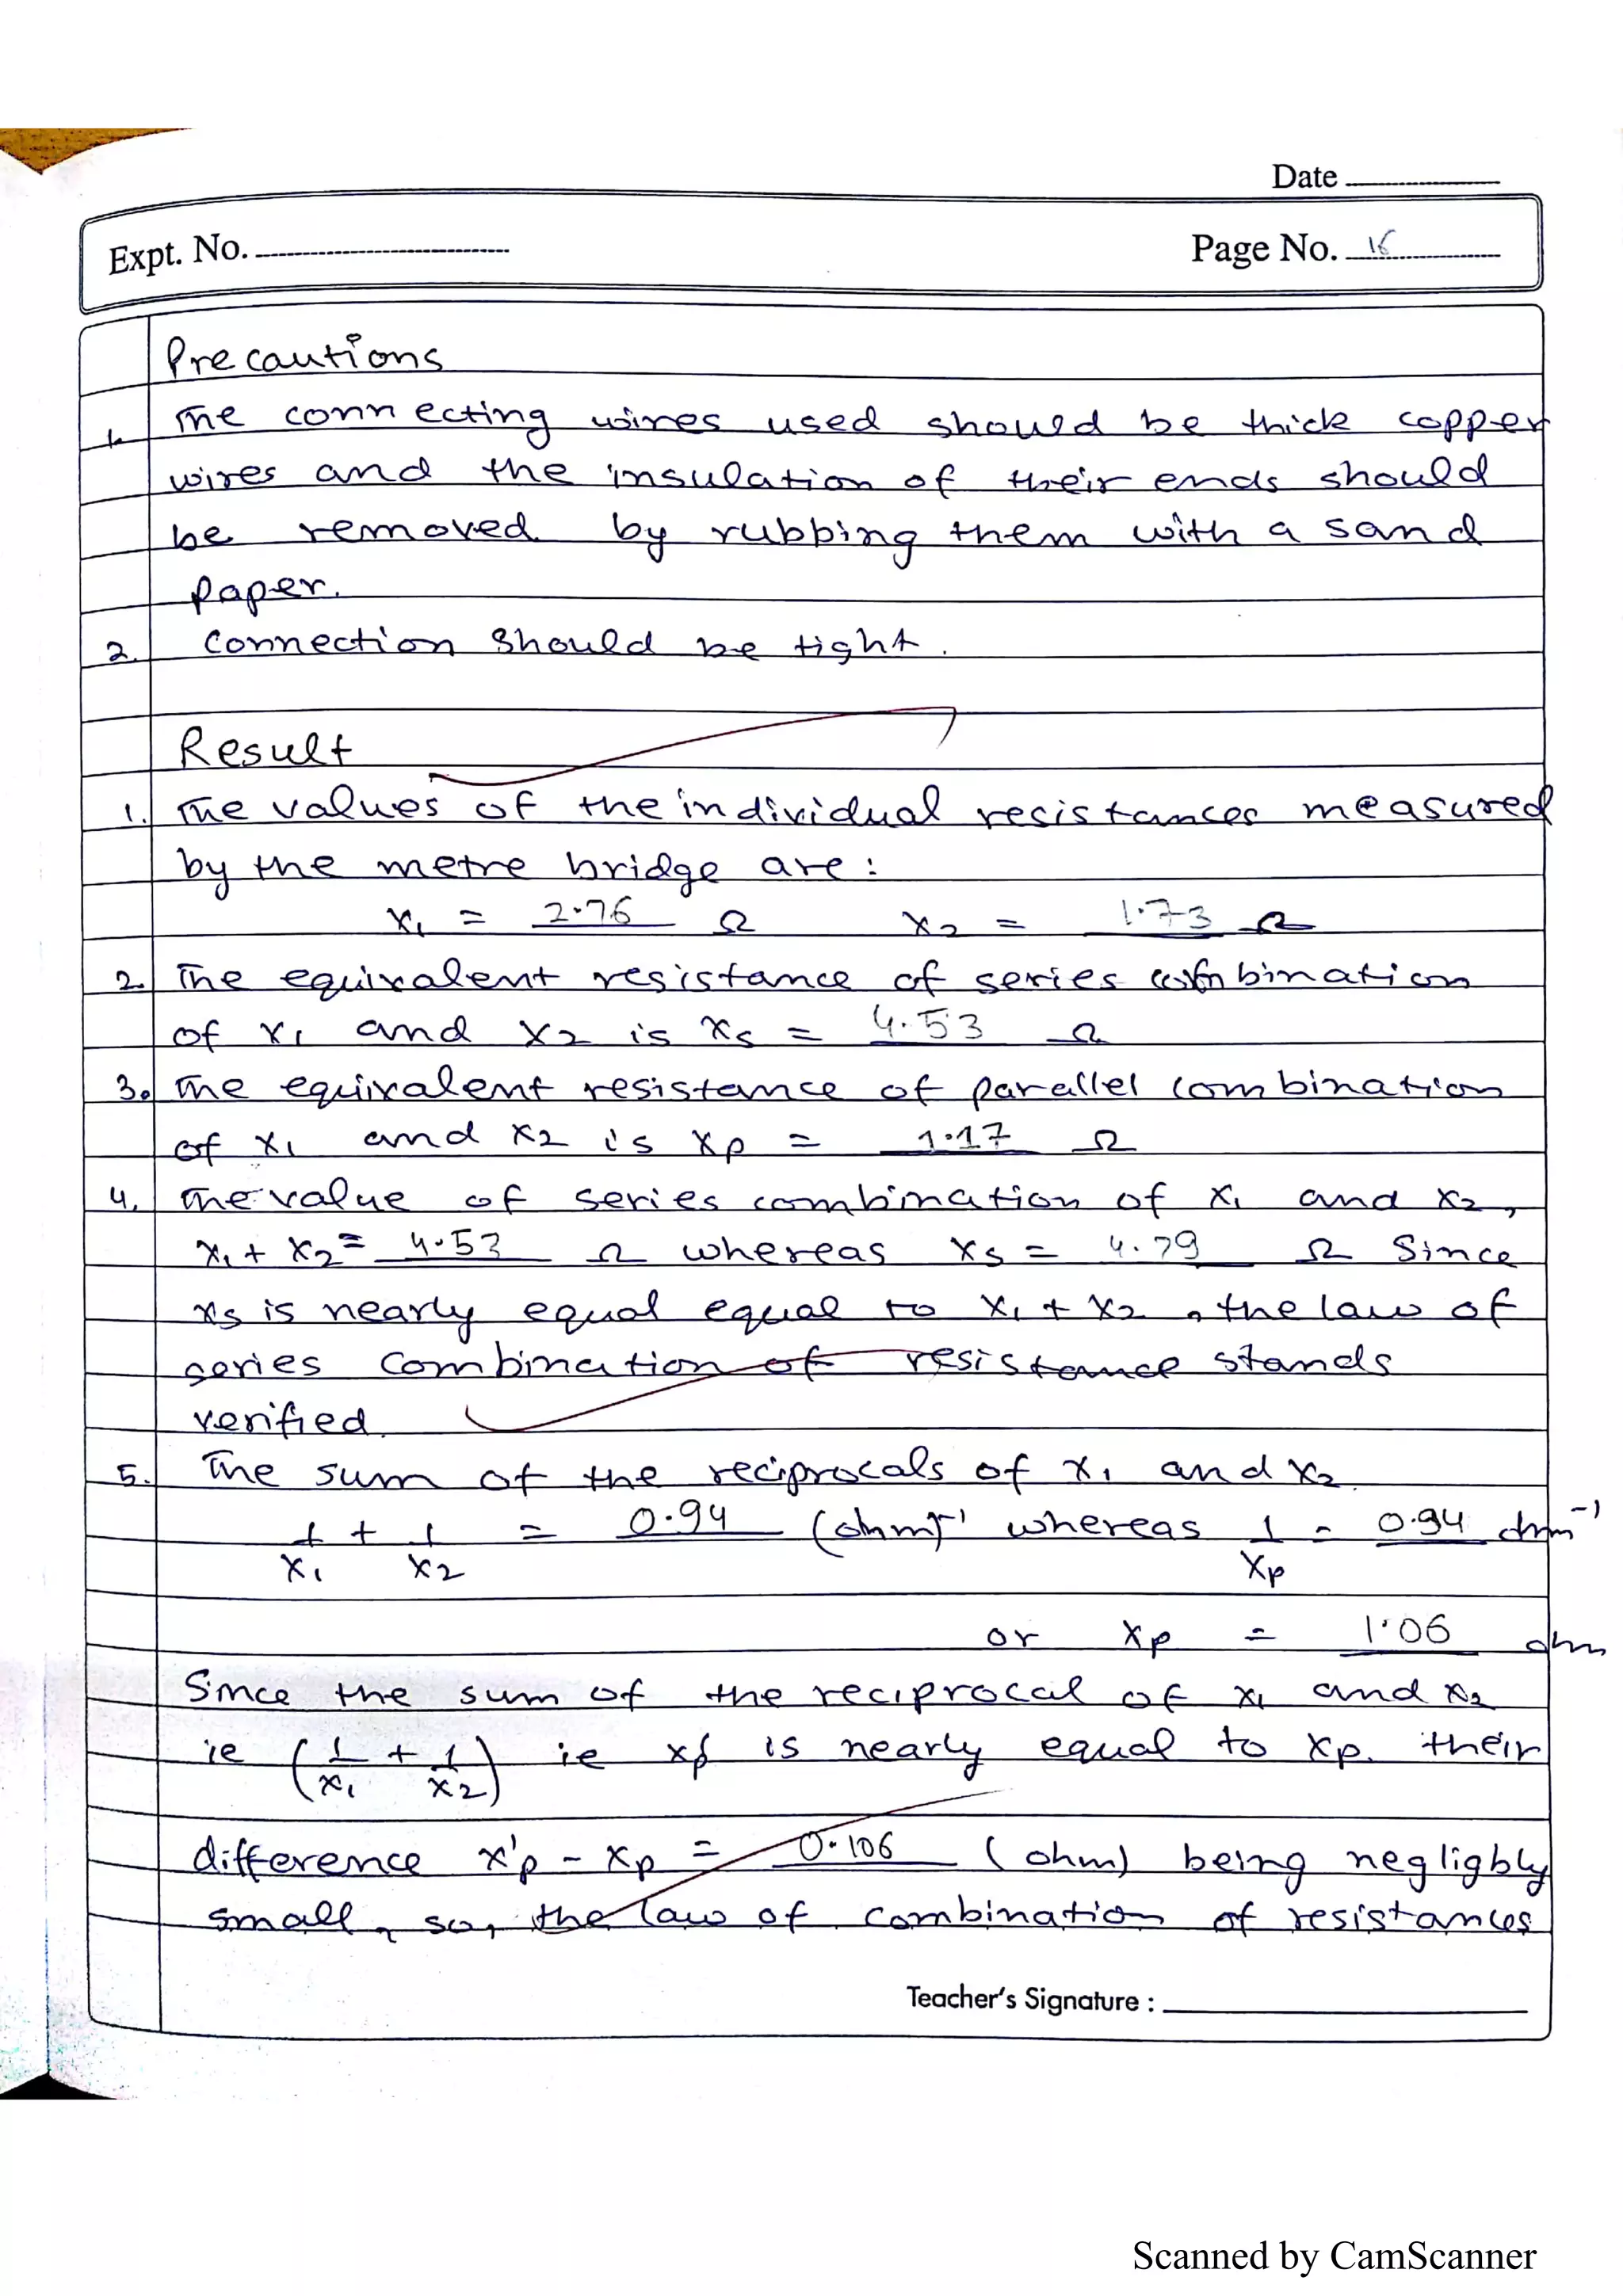 Date
Expt. No.
Page No. 16
Precautions
1. The connecting wires used should be thick copper
wires and the insulation of their ends should
be removed by rubbing them with a sand
paper.
2. Connection should be tight.
Result
1. The values of the individual resistances measured
by the metre bridge are:
x₁ = 2.76 Ω x₂ = 1.73 Ω
2. The equivalent resistance of series combination
of x₁ and x₂ is xs = 4.53 Ω
3. The equivalent resistance of parallel combination
of x₁ and x₂ is xp = 1.17 Ω
4. The value of series combination of x₁ and x₂,
x₁ + x₂ = 4.53 Ω whereas xs = 4.79 Ω Since
xs is nearly equal equal to x₁ + x₂, the law of
series combination of resistance stands
verified.
5. The sum of the reciprocals of x₁ and x₂
1/x₁ + 1/x₂ = 0.94 (ohm)⁻¹ whereas 1/xp = 0.94 ohm⁻¹
or xp = 1.06 ohm
Since the sum of the reciprocal of x₁ and x₂
ie (1/x₁ + 1/x₂) ie is nearly equal to xp. their
difference x'p - xp = 0.106 (ohm) being negligbly
small, so, the law of combination of resistances
Teacher's Signature :
Scanned by CamScanner